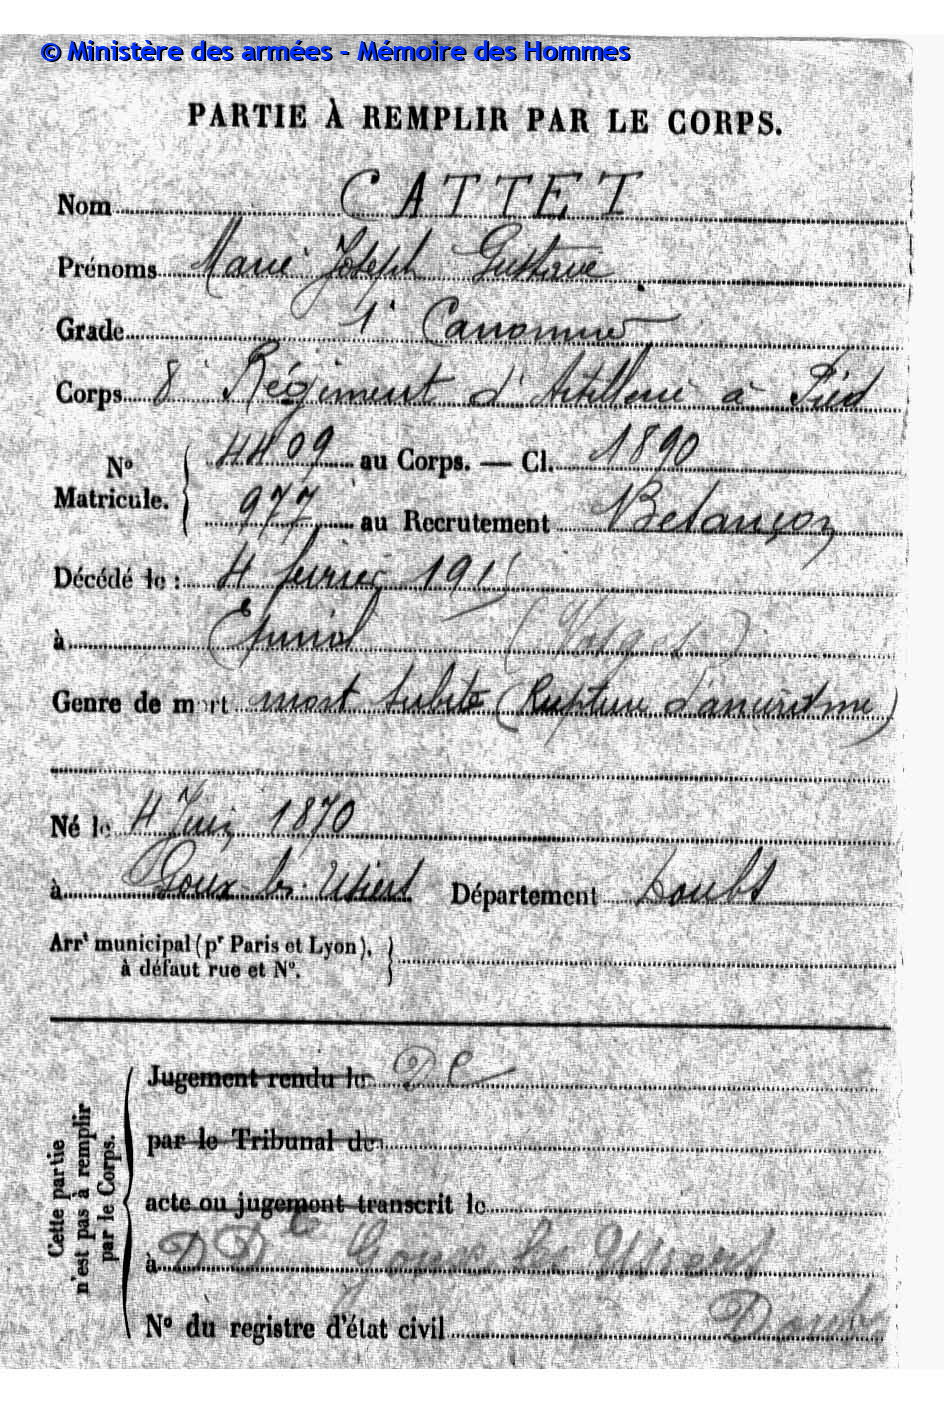 © Ministère des armées - Mémoire des Hommes
PARTIE À REMPLIR PAR LE CORPS.
Nom CATTET
Prénoms Marie Joseph Gustave
Grade 1r Canonnier
Corps 8e Régiment d'Artillerie à Pied
No Matricule. { 4409 au Corps. — Cl. 1890
977 au Recrutement Besançon
Décédé le : 4 février 1915
à Epinal (Vosges)
Genre de mort mort subite (Rupture d'anévrisme)
Né le 4 Juin 1870
à Goux les Usiers Département Doubs
Arrt municipal (pr Paris et Lyon),
à défaut rue et No.
Cette partie
n'est pas à remplir
par le Corps.
Jugement rendu le
par le Tribunal de
acte ou jugement transcrit le
à Goux les Usiers
Doubs
No du registre d'état civil